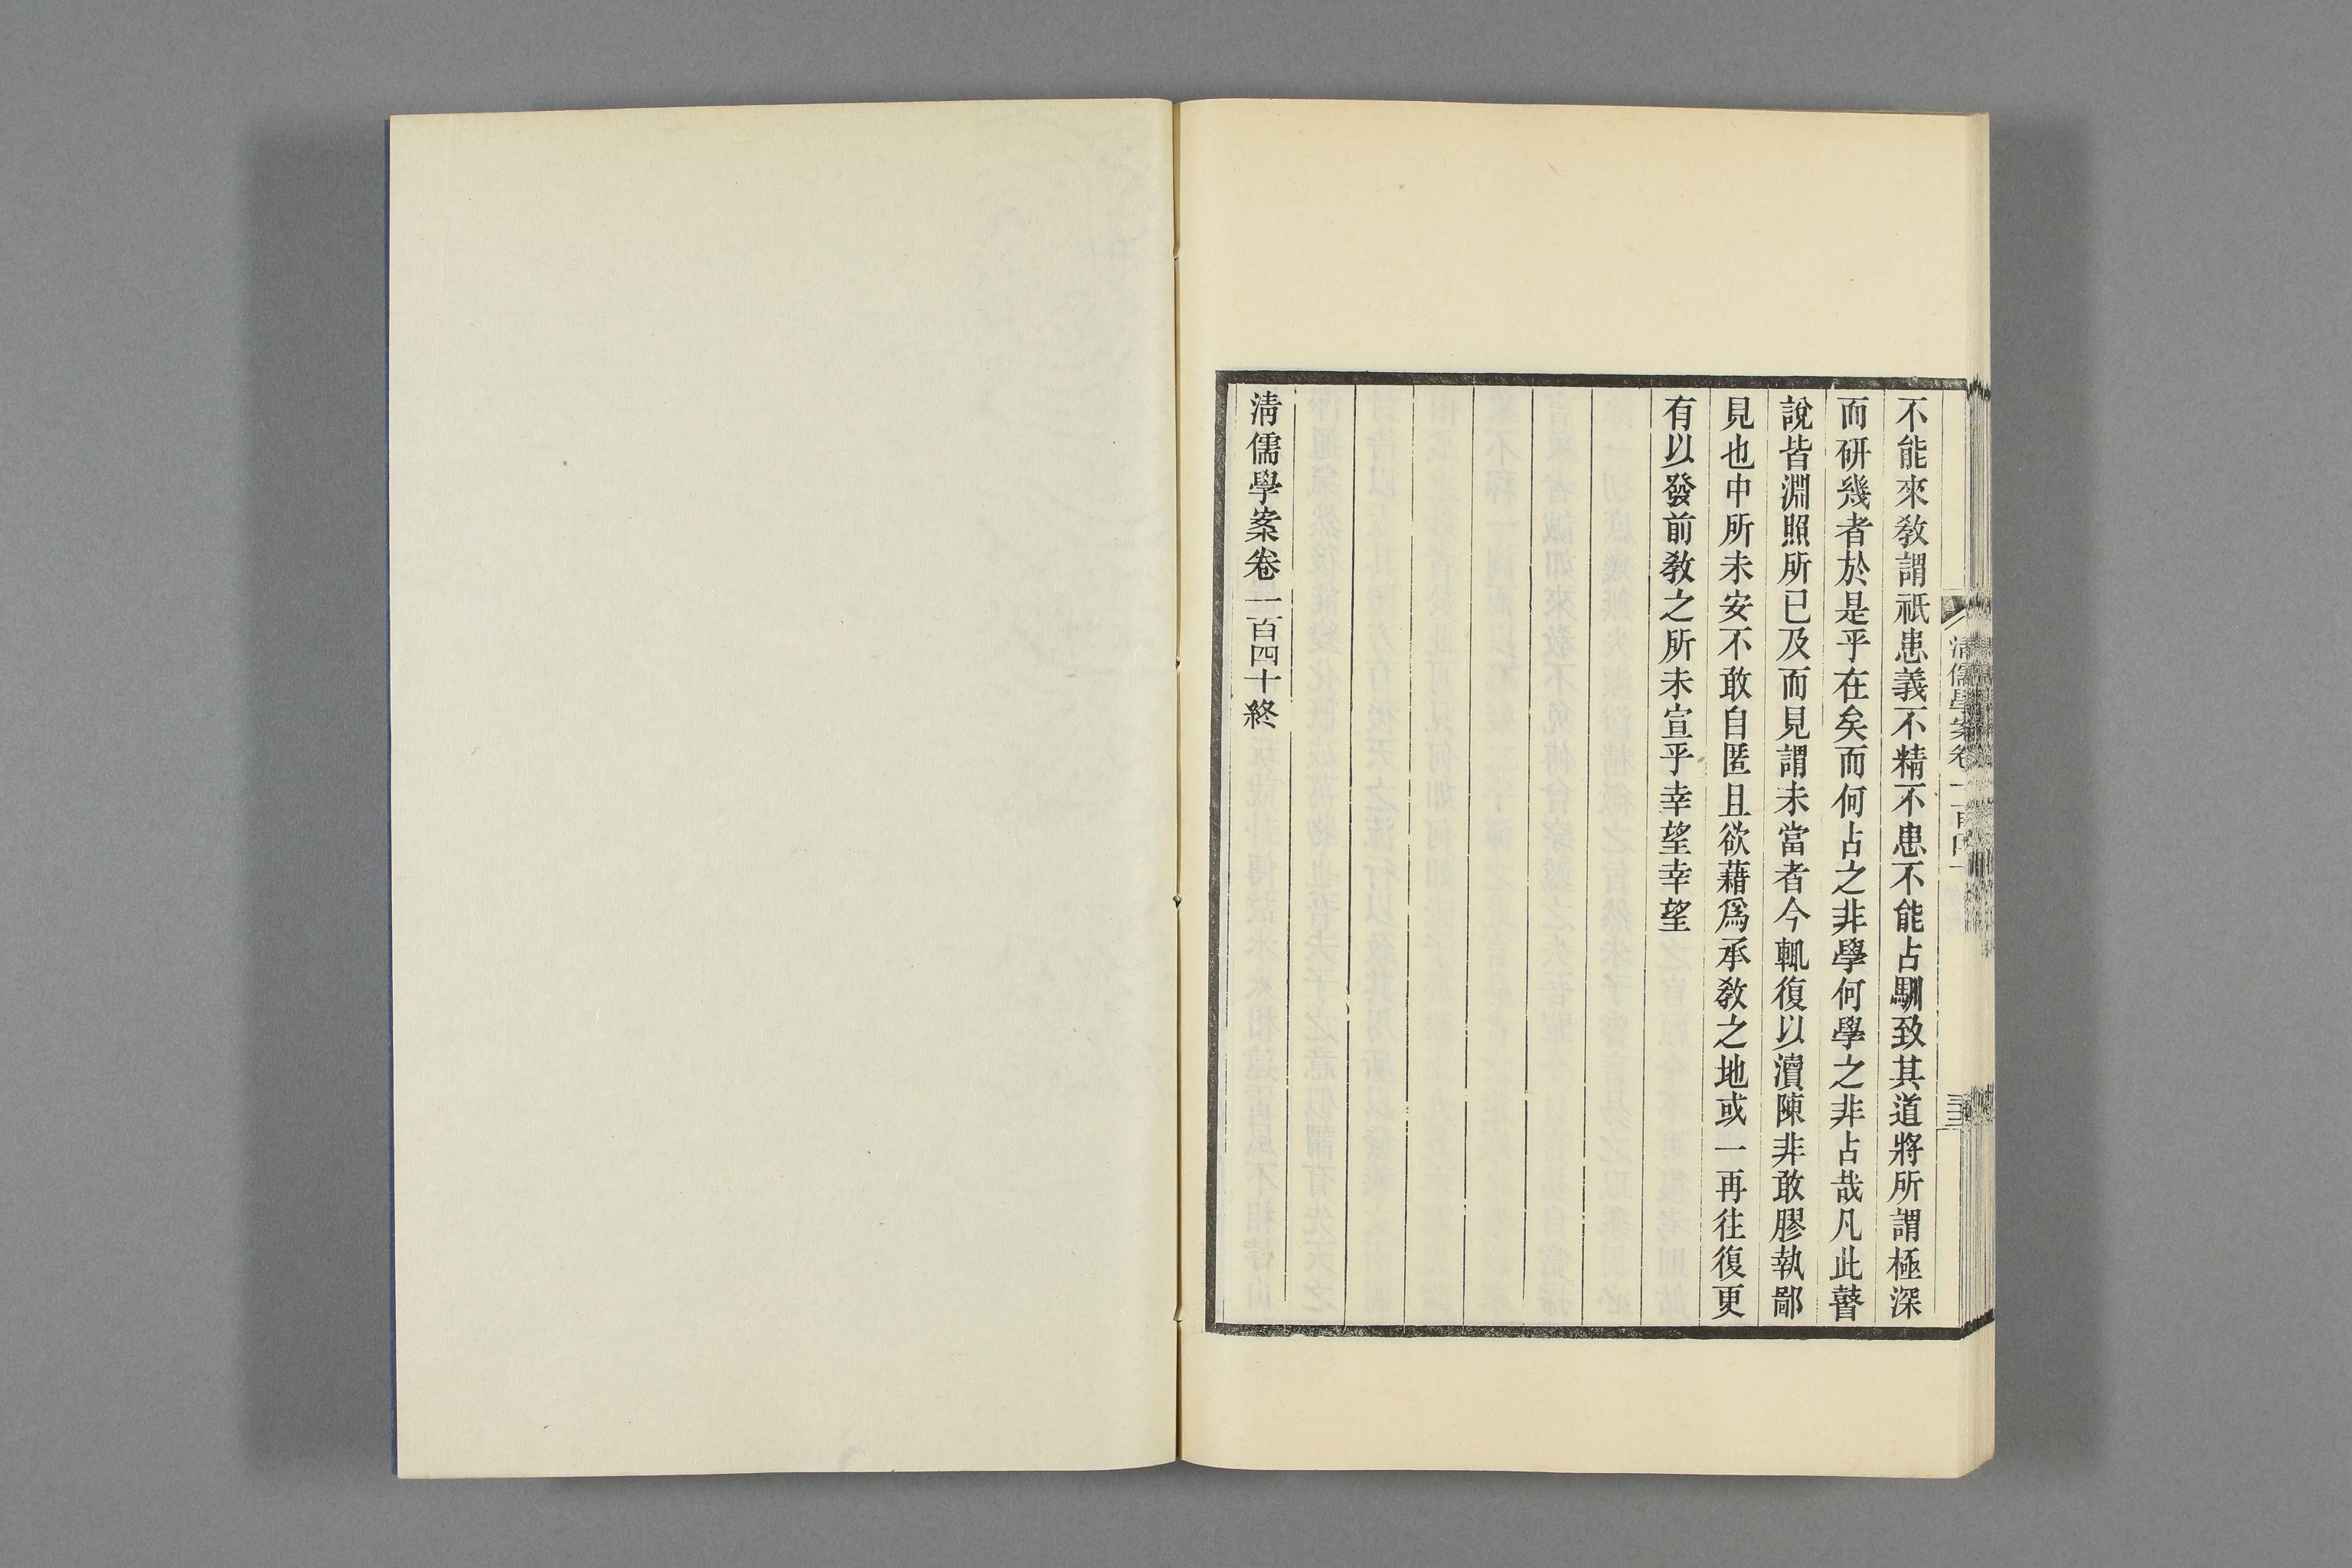 不能來敎謂祇患義不精不患不能占馴致其道將所謂極深
而研幾者於是乎在矣而何占之非學何學之非占哉凡此瞽
說皆淵照所已及而見謂未當者今輒復以瀆陳非敢膠執鄙
見也中所未安不敢自匿且欲藉爲承敎之地或一再往復更
有以發前敎之所未宣乎幸望幸望
清儒學案卷一百四十終
清儒學案卷一百四十